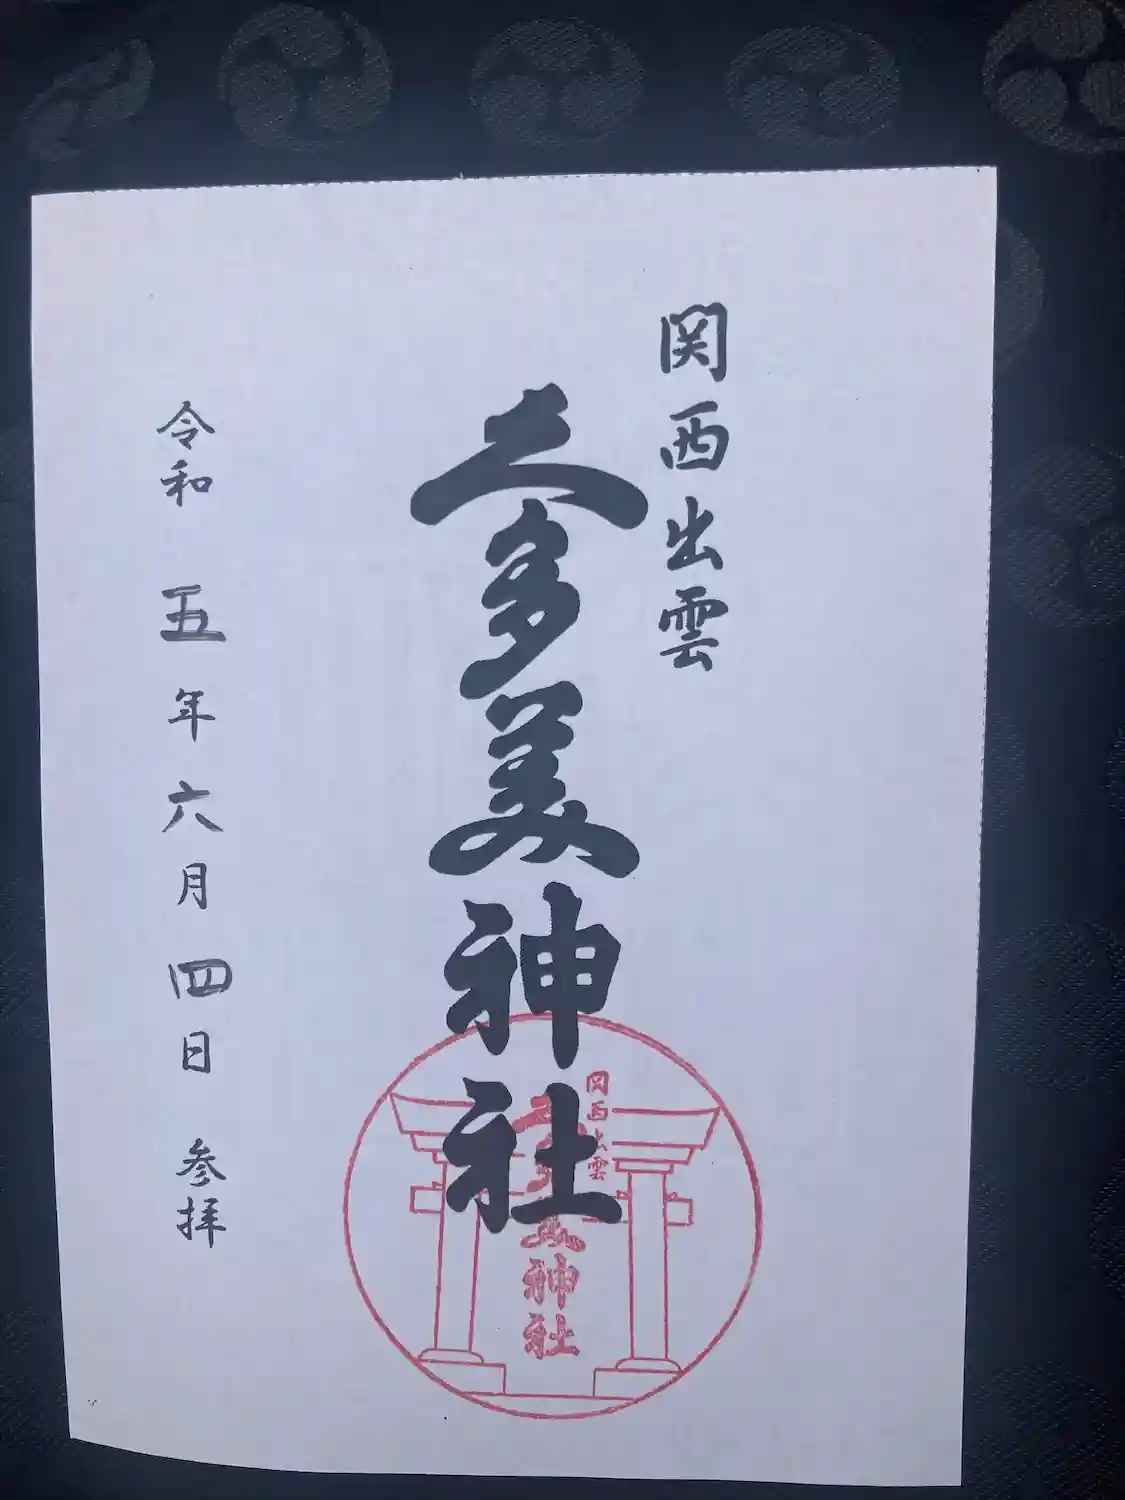 関西出雲
久多美神社
令和五年六月四日参拝
関西出雲
久多美神社